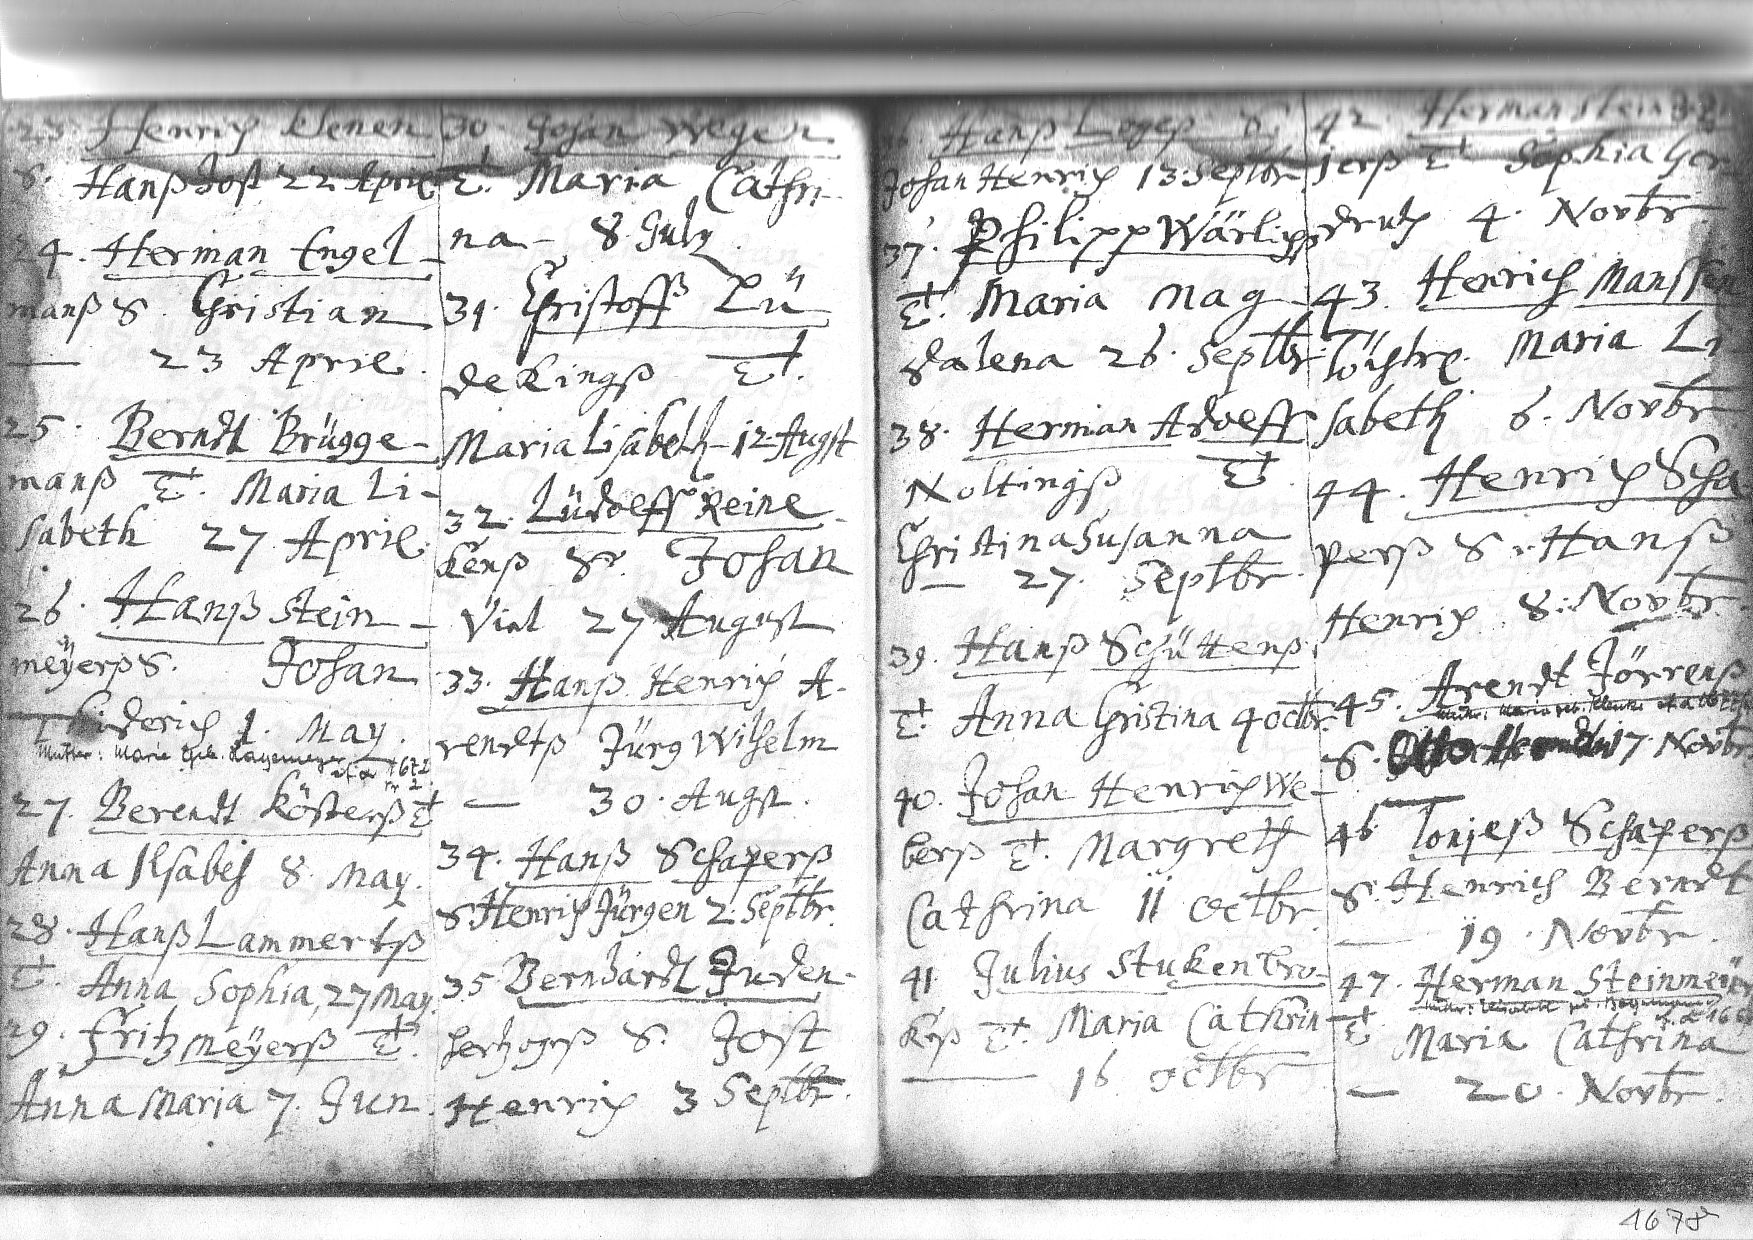 23. Henrich Klenen
S. Hanß Jost 22 April
24. Herman Engel-
manß S. Christian
— 23 April.
25. Berndt Brügge-
manß T. Maria Li-
sabeth 27 April.
26. Hanß Stein-
meÿerß S. Johan
Friderich 1. May.
Mutter: Maria geb.
27. Berendt Kösterß T
Anna Ilsabeh 8. May.
28. Hanß Lammertß
T. Anna Sophia, 27 May.
29. Fritz Meÿerß T.
Anna Maria 7. Jun.
30. Johan Weger
T. Maria Cathri-
na - 8 July.
31. Christoff Lü
dekingß T.
Maria Lisabeth - 12. Augst
32. Lüdeff Reine-
kenß S. Johan
Vial 27 August
33. Hanß Henrich A-
rendtß Jürg Wilhelm
— 30. Augst.
34. Hanß Schaperß
S. Henrich Jürgen 2. Septbr.
35. Bernhardt Juden-
hertzogß S. Jost
Henrich 3 Septbr.
Hanß S.
Johan Henrich 13. Septbr.
37. Philipp Wärlipß
T. Maria Mag
dalena 26. Septbr.
38. Herman Adoeff
Noltingß T.
Christina Susanna
— 27. Septbr.
39. Hanß Schüttenß
T. Anna Christina 4 octbr.
40. Johan Henrich We-
berß T. Margreth
Cathrina 11 octbr.
41. Julius Stukenbro-
kß T. Maria Cathrin
— 16 octbr
42. Herman Stein
jerß T Sophia Ger-
drutg 4. Novbr.
43. Henrich Manssen
Töchtr. Maria Li-
sabeth 6. Novbr
44. Henrich Scha
perß S. Hanß
Henrich 8. Novbr.
45. Arendt Jörrenß
S. 17. Novbr.
46. Tonjeß Schaperß
S. Henrich Berndt
— 19. Novbr.
47. Herman Steinmeÿer
T. Maria Cathrina
— 20. Novbr.
1678